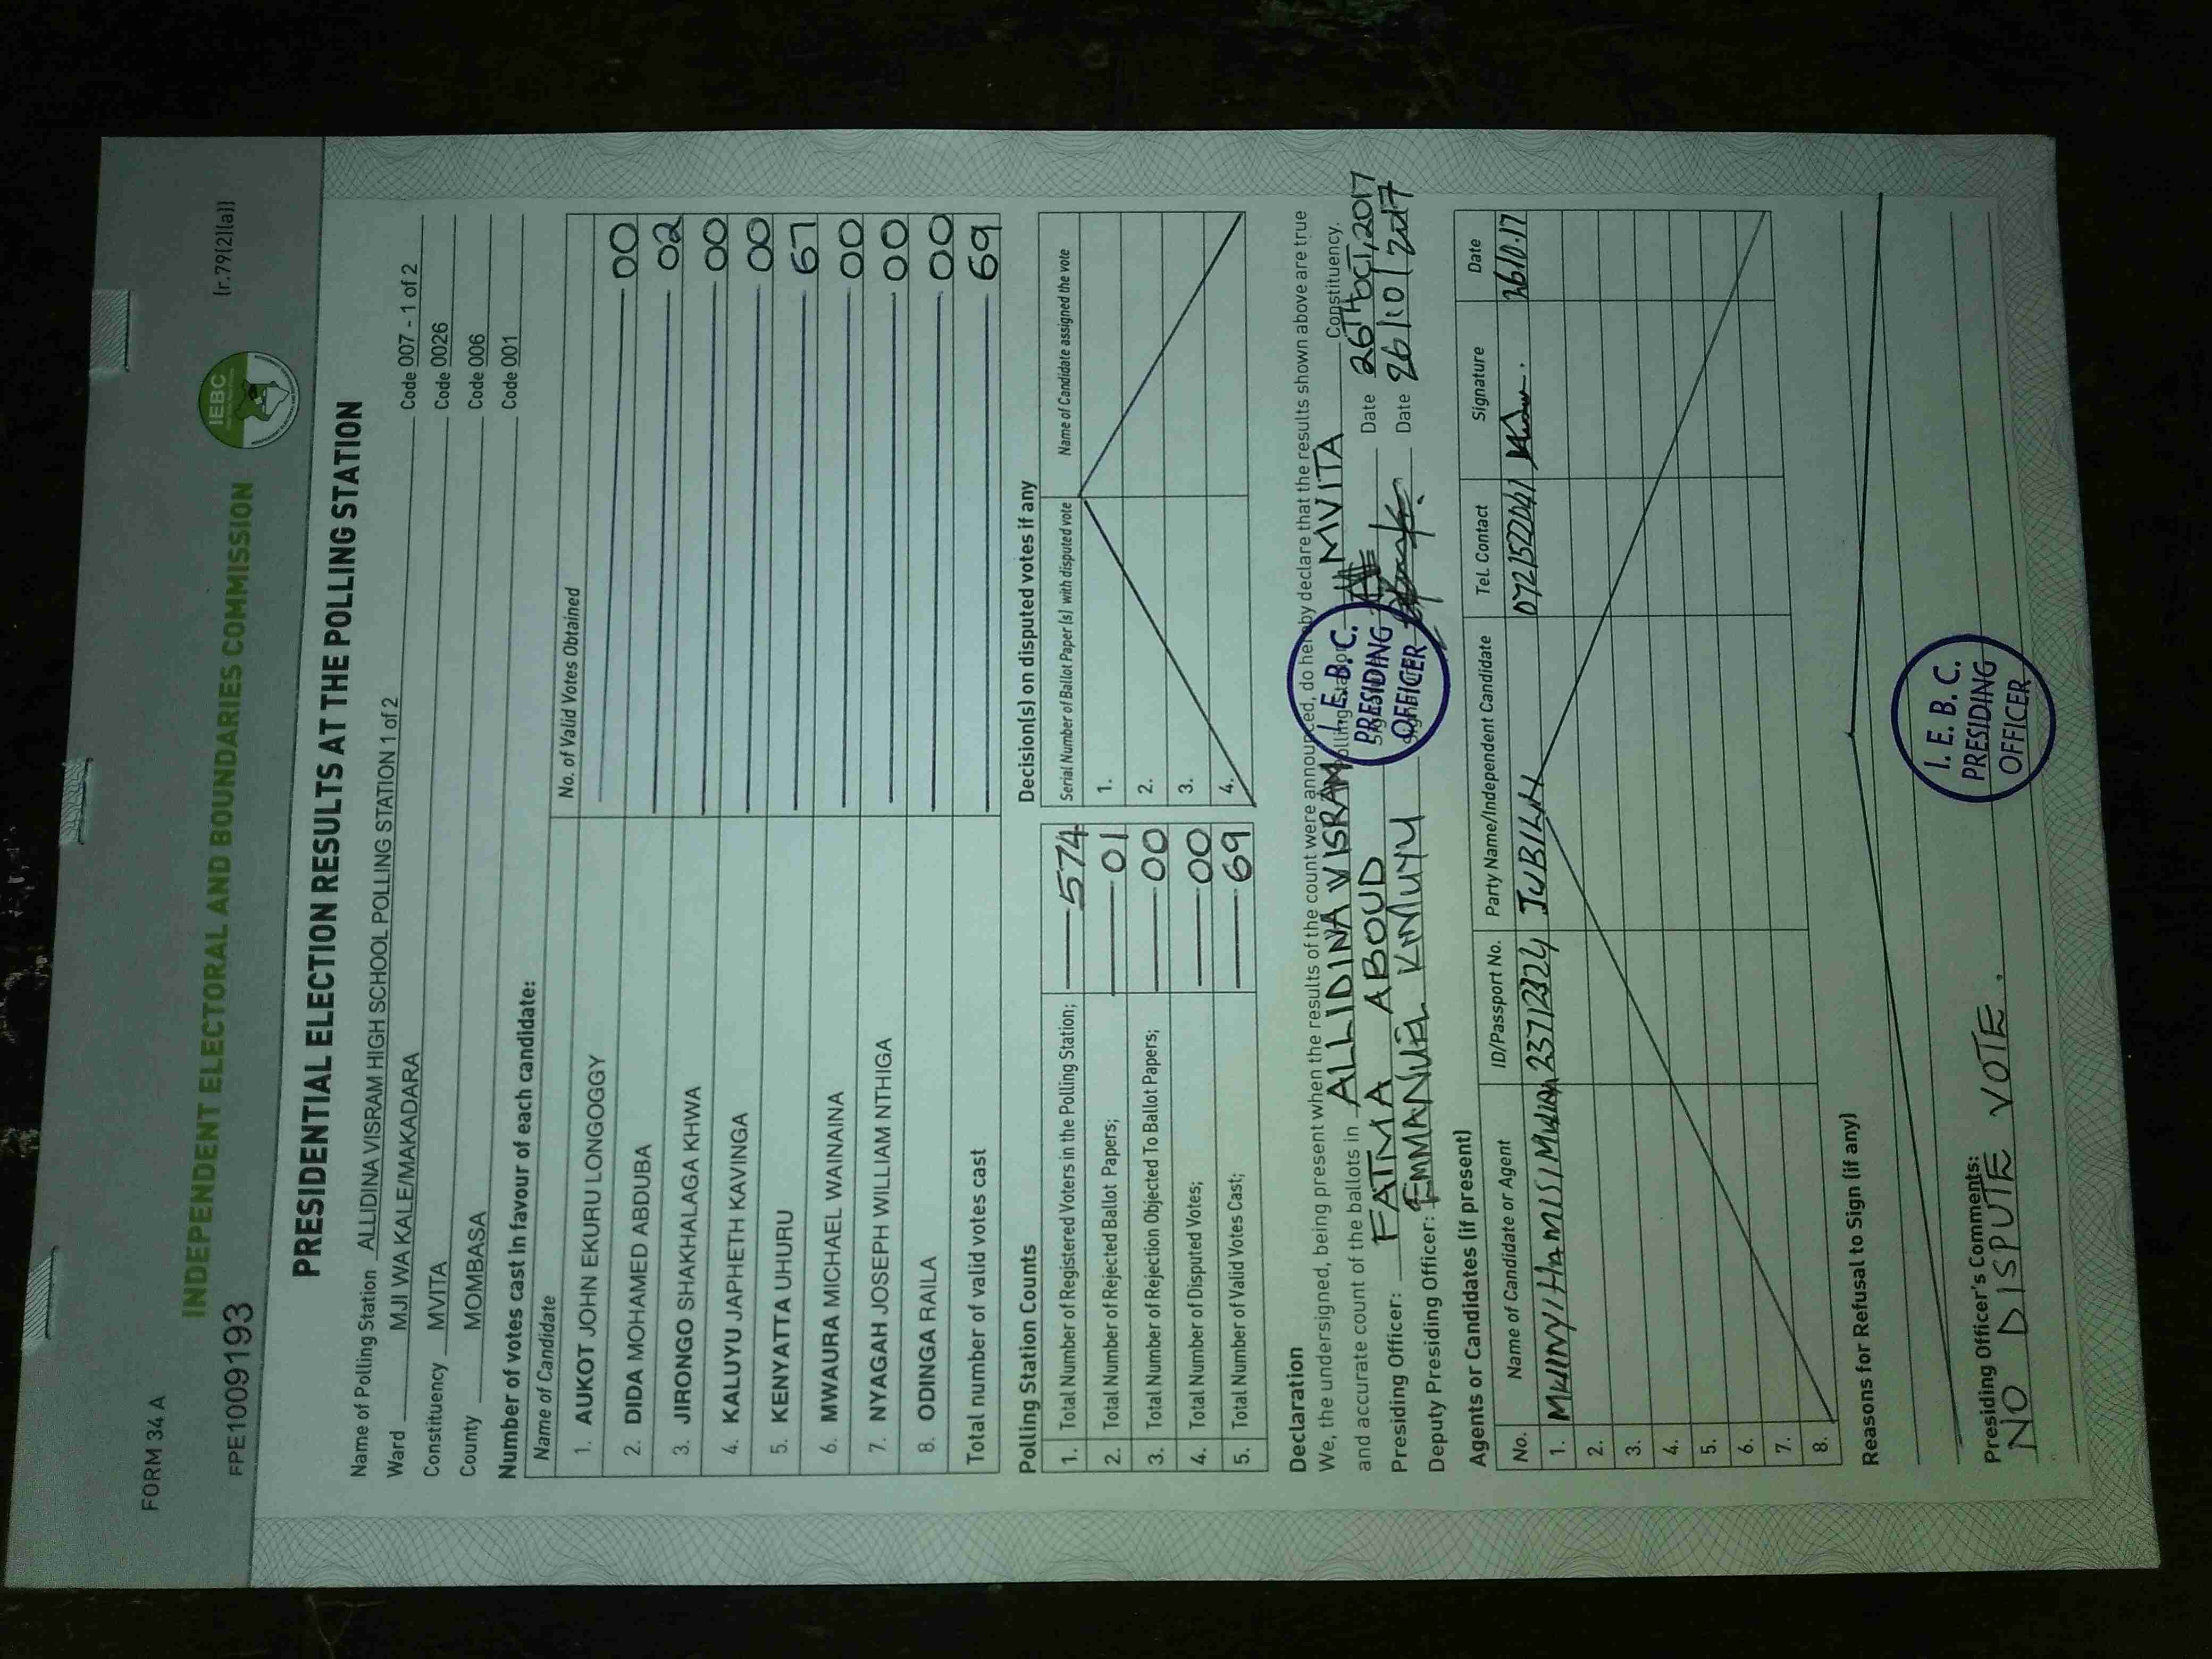 FORM 34 A
FPE1009193
(r.79(2)(a))
INDEPENDENT ELECTORAL AND BOUNDARIES COMMISSION
IEBC
PRESIDENTIAL ELECTION RESULTS AT THE POLLING STATION
Name of Polling Station ALLIDINA VISRAM HIGH SCHOOL POLLING STATION 1 of 2 Code 007 - 1 of 2
Ward MJI WA KALE/MAKADARA Code 0026
Constituency MVITA Code 006
County MOMBASA Code 001
Number of votes cast In favour of each candidate:
Name of Candidate No. of Valid Votes Obtained
1. AUKOT JOHN EKURU LONGOGGY 00
2. DIDA MOHAMED ABDUBA 02
3. JIRONGO SHAKHALAGA KHWA 00
4. KALUYU JAPHETH KAVINGA 00
5. KENYATTA UHURU 67
6. MWAURA MICHAEL WAINAINA 00
7. NYAGAH JOSEPH WILLIAM NTHIGA 00
8. ODINGA RAILA 00
Total number of valid votes cast 69
Polling Station Counts
1. Total Number of Registered Voters in the Polling Station; 574
2. Total Number of Rejected Ballot Papers; 01
3. Total Number of Rejection Objected To Ballot Papers; 00
4. Total Number of Disputed Votes; 00
5. Total Number of Valid Votes Cast; 69
Decision(s) on disputed votes if any
Serial Number of Ballot Paper(s) with disputed vote Name of Candidate assigned the vote
1.
2.
3.
4.
Declaration
We, the undersigned, being present when the results of the count were announced, do hereby declare that the results shown above are true
and accurate count of the ballots in ALLIDINA VISRAM Polling Station MVITA Constituency.
Presiding Officer: FATMA ABOUD Date 26TH OCT, 2017
Deputy Presiding Officer: EMMANUEL Date 26/10/2017
I. E. B. C.
PRESIDING
OFFICER
Agents or Candidates (if present)
No. Name of Candidate or Agent ID/Passport No. Party Name/Independent Candidate Tel. Contact Signature Date
1. HAMISI 23712324 JUBILEE 0721522041 26.10.17
2.
3.
4.
5.
6.
7.
8.
Reasons for Refusal to Sign (if any)
Presiding Officer's Comments:
NO DISPUTE VOTE.
I. E. B. C.
PRESIDING
OFFICER